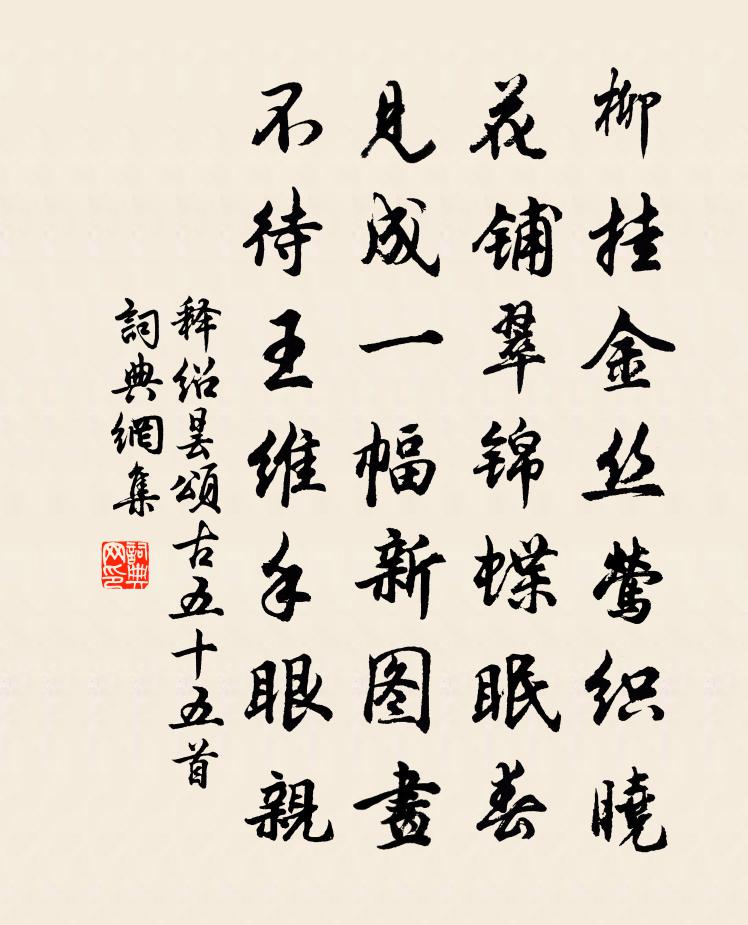 柳挂金丝莺织晓
花铺翠锦蝶眠春
见成一幅新图畫
不待王维手眼親
释绍昙頌古五十五首
詞典網集
詞典网印